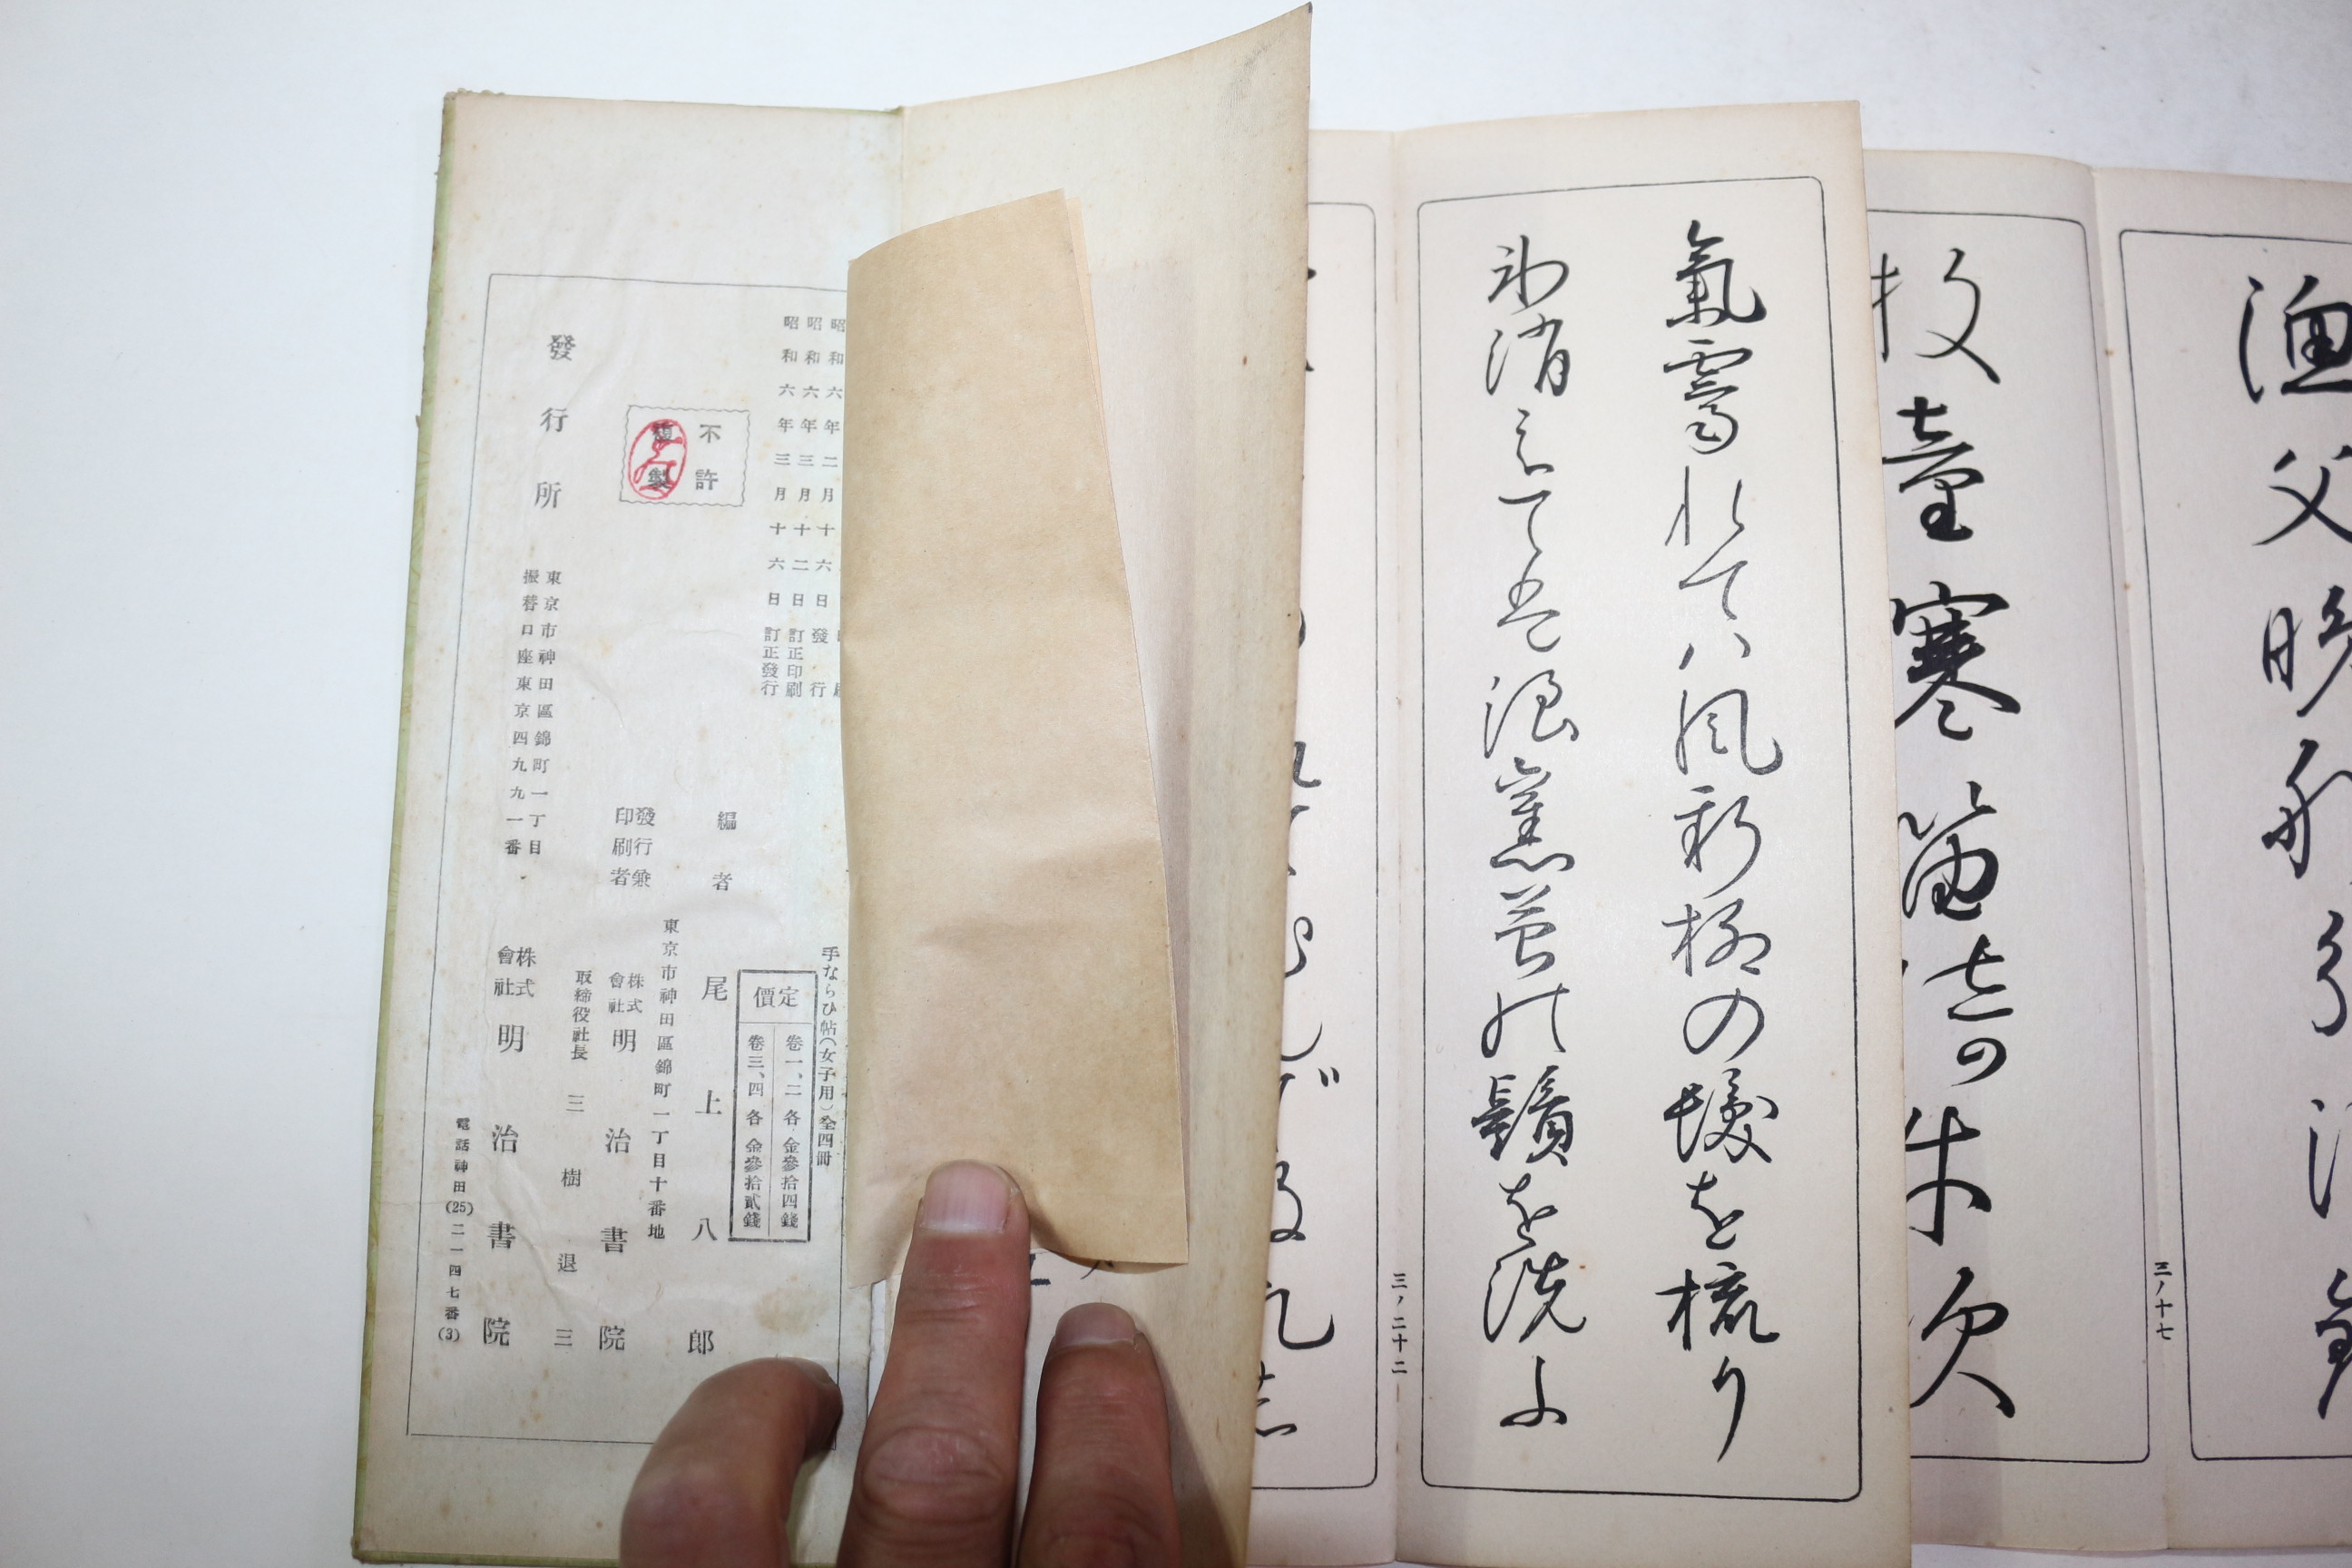 漁父晩舟分
牧童寒笛吉の牛吹
三ノ十七
氣霽れてハ風新柳の髪を梳り
氷消えて盤浪舊苔能鬚を洗ふ
三ノ二十二
昭和六年二月十六日發行
昭和六年三月十二日訂正印刷
昭和六年三月十六日訂正發行
手ならひ帖(女子用)全四冊
定價
卷一、二各金參拾四錢
卷三、四各金參拾貳錢
不許複製
編者 尾上八郎
東京市神田區錦町一丁目十番地
發行兼印刷者 株式會社明治書院
取締役社長 三樹退三
發行所
東京市神田區錦町一丁目
振替口座東京四九九一番
株式會社 明治書院
電話神田(25)二一四七番(3)